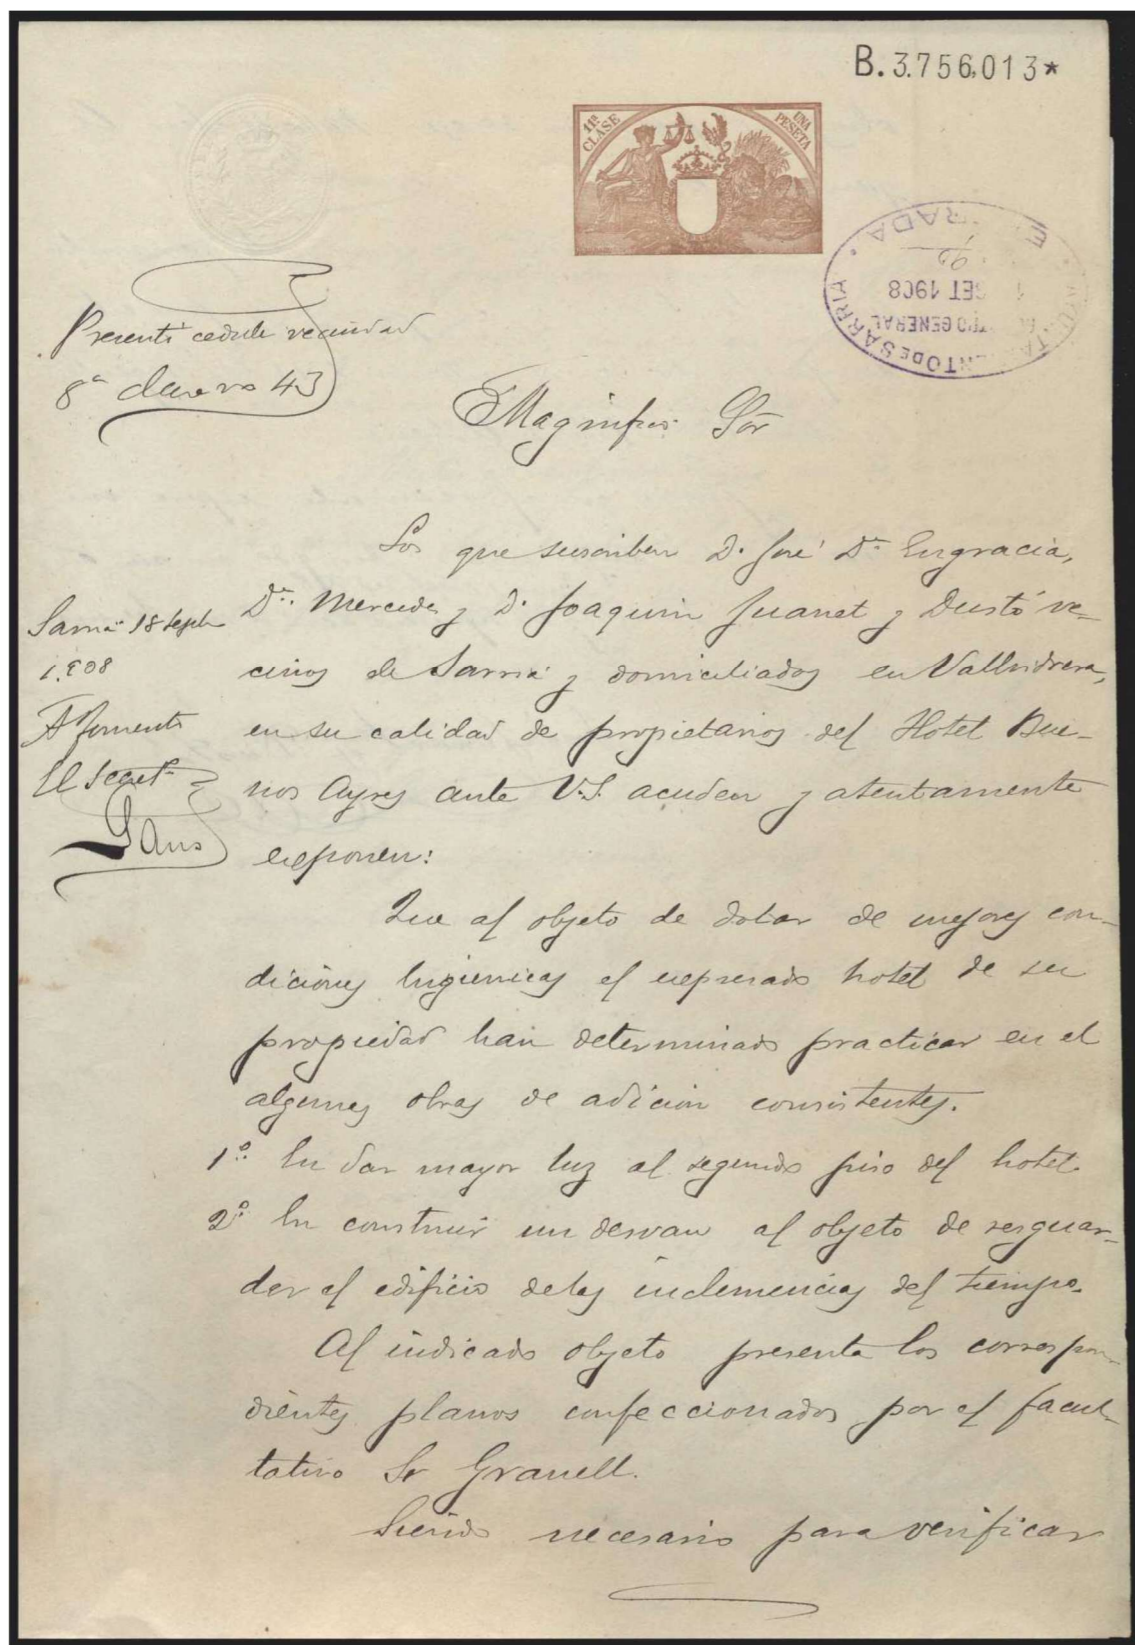 B.3.756.013*
11ª CLASE
UNA PESETA
AYUNTAMIENTO DE SARRIA
REGISTRO GENERAL
SET 1908
ENTRADA
Presenta cedula vecindad
8ª numero 43
Magnífico Sór
Los que suscriben D. José Dª Engracia,
Dª Mercedes y D. Joaquin Juanet y Dustó ve-
cinos de Sarriá y domiciliados en Vallvidrera,
en su calidad de propietarios del Hotel Bue-
nos Ayres ante V.S. acuden y atentamente
exponen:
Sarriá 18 Septbre
1.908
A Fomento
El Secretº
Sans
Que al objeto de dotar de mejores con-
diciones higienicas el expresado hotel de su
propiedad han determinado practicar en el
algunas obras de adicion consistentes.
1º En dar mayor luz al segundo piso del hotel.
2º En construir un desvan al objeto de resguar-
dar el edificio de las inclemencias del tiempo.
Al indicado objeto presenta los correspon-
dientes planos confeccionados por el facul-
tativo Sr Granell.
Siendo necesario para verificar